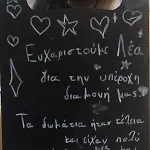 Ευχαριστούμε Λέα
για την υπέροχη
διαμονή μας.
Τα δωμάτια ήταν τέλεια
και είχαν πολύ